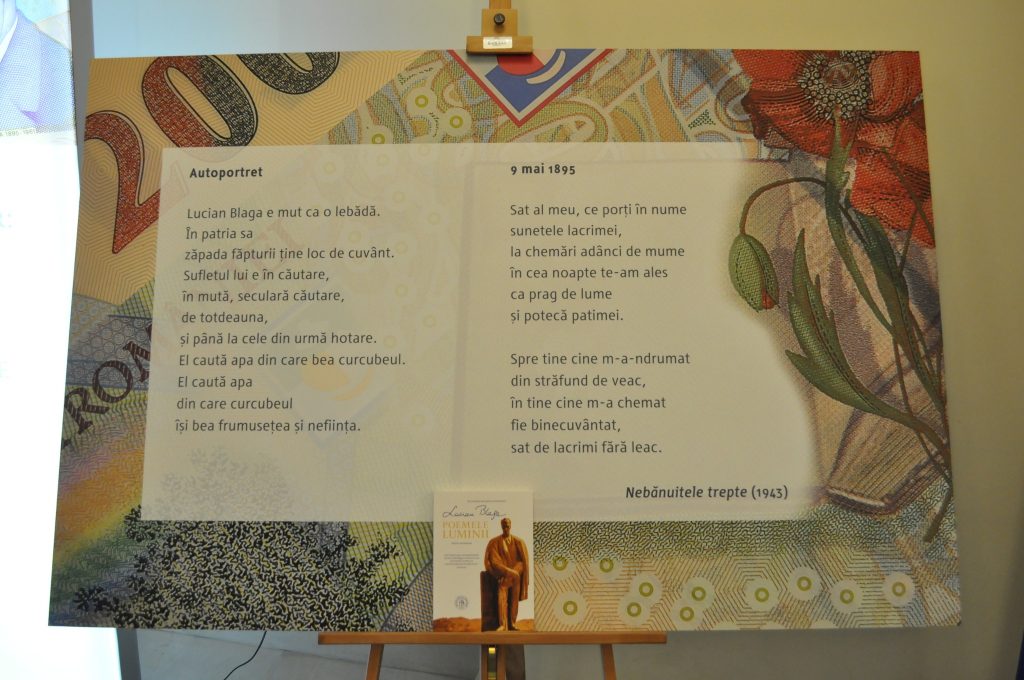 200
ROM
Autoportret
Lucian Blaga e mut ca o lebădă.
În patria sa
zăpada făpturii ține loc de cuvânt.
Sufletul lui e în căutare,
în mută, seculară căutare,
de totdeauna,
și până la cele din urmă hotare.
El caută apa din care bea curcubeul.
El caută apa
din care curcubeul
își bea frumusețea și neființa.
9 mai 1895
Sat al meu, ce porți în nume
sunetele lacrimei,
la chemări adânci de mume
în cea noapte te-am ales
ca prag de lume
și potecă patimei.
Spre tine cine m-a-ndrumat
din străfund de veac,
în tine cine m-a chemat
fie binecuvântat,
sat de lacrimi fără leac.
Nebănuitele trepte (1943)
Lucian Blaga
POEMELE
LUMINII